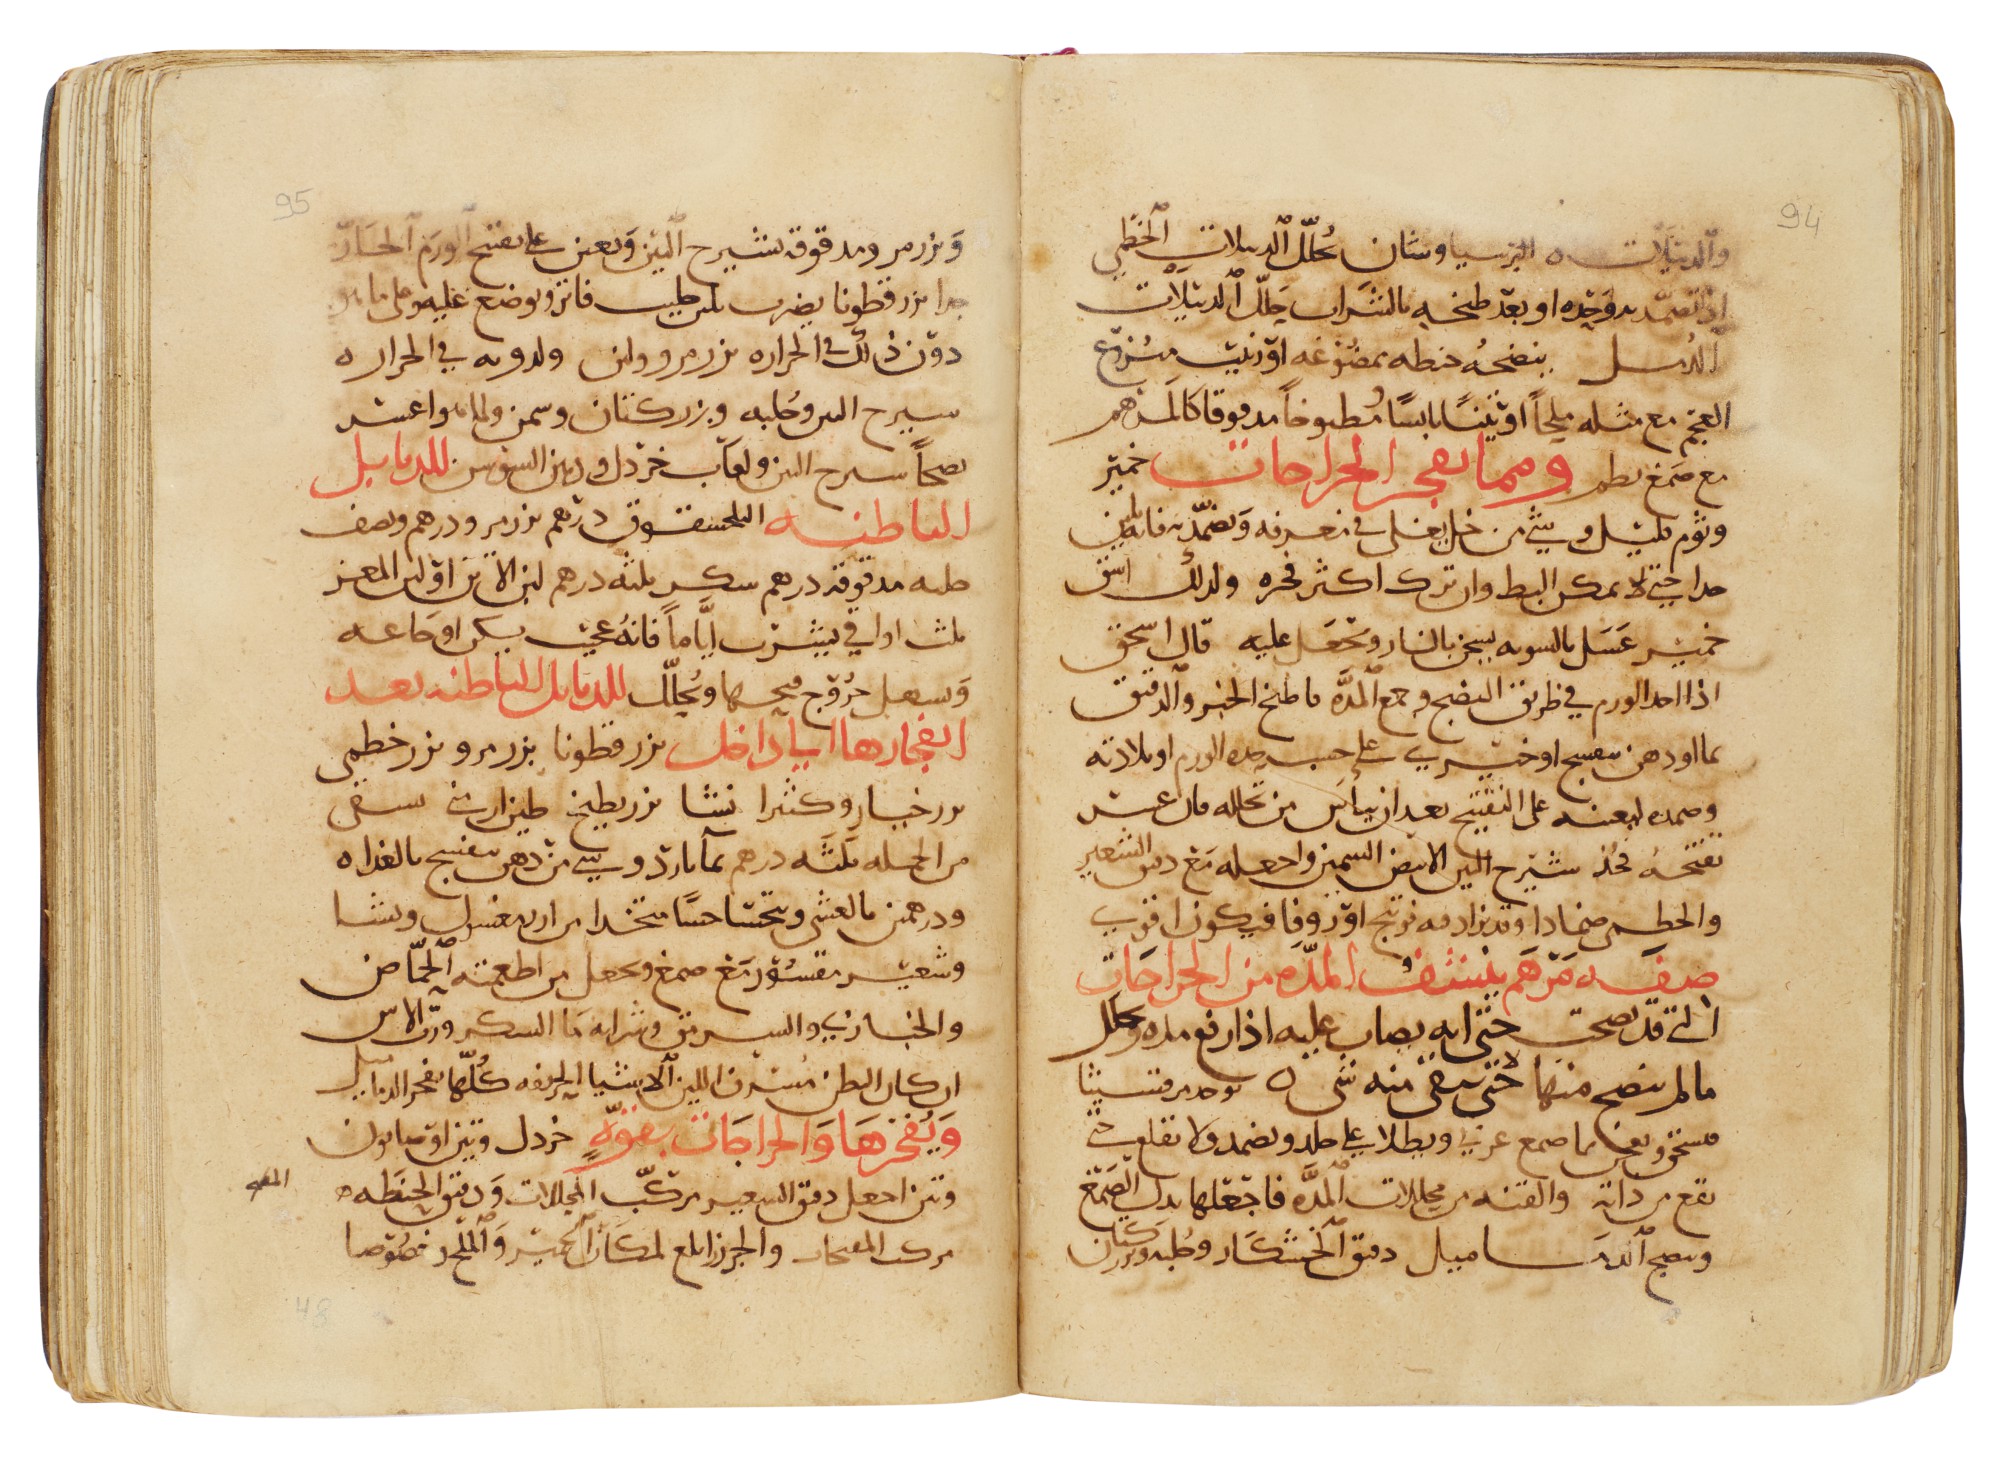 94
والدبيلات ه البرسياوشان يحلل الدبيلات الخطمي
اذا تضمد به وحده او بعد طبخه بالشراب حلل الدبيلات
الدمل ينضجه حنطه ممضوغه او زبيب منزوع
العجم مع مثله ملحاً او تيناً يابساً مطبوخاً مدقوقا كالمرهم
مع صمغ بطم ومما يفجر الجراحات خمير
وثوم قليل وشي من خل يغلى في مغرفه ويضمد به فانه يلين
جدا حتى لا يمكن البط وان ترك اكثر فجره ولذلك
خمير عسل بالسويه يسخن بالنار ويجعل عليه قال اسحق
اذا اخذ الورم في طريق النضج وجمع المده فاطبخ الخبز والدقيق
بما او دهن بنفسج او خيري على حسب حده الورم او بلادته
وضمده لتعينه على التفتيح بعد ان تياس من تحلله فان عسر
تفتحه فخذ شيرج التين الابيض السمين واجعله مع دقيق الشعير
والخطمي ضمادا وقد يزاد فيه فوتنج او زوفا فيكون اقوى
صفه مرهم ينشف المده من الجراحات
التي قد نضجت حتى انه يصاب عليه اذا رفع مده ويحلل
ما لم ينضج منها حتى لا يبقى منه شي ه يوخذ مرقشيثا
فيسحق ويعجن بماء صمغ عربي ويطلا على جلد ويضمد ولا يقلع حتى
يقع من ذاته والقنه من محللات المده فاجعلها بدل الصمغ
وينضج الدماميل دقيق الخشكار وحلبه وبزركتان
95
وبزر مرو مدقوقه بشيرج التين ويعين على تفتيح الورم الحار
جدا بزرقطونا يضرب بلبن حليب فاتر ويوضع عليه
دون ذلك في الحراره بزر مرو ولبن ولدونه في الحراره
شيرج التين وحلبه وبزركتان وسمن ولما هو اعسر
نضجاً شيرج التين ولعاب خردل ودهن السوسن للدماميل
الباطنه البلحسفوق درهم بزر مرو درهم ونصف
حلبه مدقوقه درهم سكر ثلثه درهم لبن الاتن او لبن المعز
ثلث اواقي يشرب اياماً فانه عجيب يسكن اوجاعه
ويسهل خروج قيحها ويحلل للدماميل الباطنه بعد
انفجارها الى داخل بزر قطونا بزر مرو بزر خطمي
بزر خيار وكثيرا نشا بزر بطيخ طين ارمني يسقى
من الجمله ثلثه درهم بماء بارد وشي من دهن بنفسج بالغداه
ودرهمين بالعشي ويتحسا حسا متخذا من ارز مغسول ونشا
وشعير مقشور مع صمغ ويجعل من اطعمته الحماض
والخبازي والسرمق وشرابه ما السكر ورب الاس
ان كان البطن مسترق اللين الاشيا الحريفه كلها تفجر الدماميل
ويفجرها والجراحات بقوه خردل وتين او صابون
وتين اجعل دقيق الشعير مركب المحللات ودقيق الحنطه
مركب المفتحات والخبز ابلغ لمكان الخمير والملح وخصوصا
48